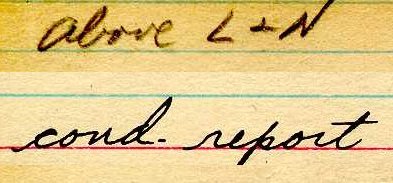 above L+N
cond. report